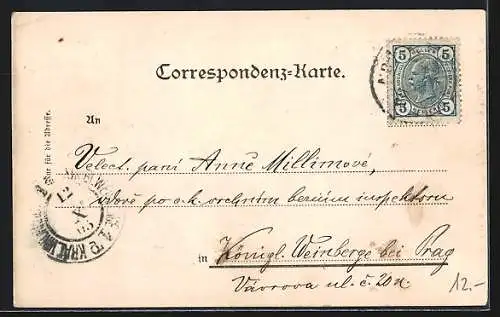 Correspondenz-Karte.
5 5
5 5
An
Nur für die Adresse.
Velect. paní Anně Millimové,
vdově po c.k. vrchním berním inspektoru
in Königl. Weinberge bei Prag
Vávrova ul. č. 20n.
12.-
12
X
03
KRÁL.